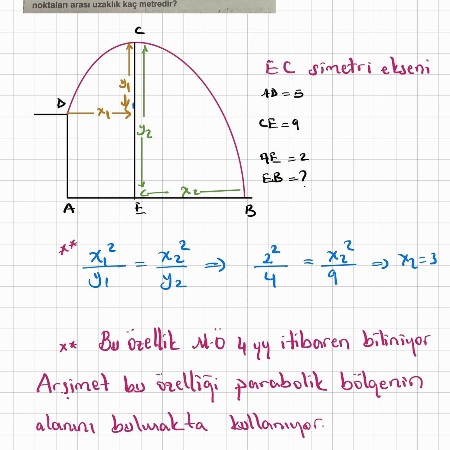 noktaları arası uzaklık kaç metredir?
C
EC simetri ekseni
y₁
D
x₁
AD = 5
CE = 9
y₂
AE = 2
EB = ?
x₂
A
E
B
** x₁²/y₁ = x₂²/y₂ ⇒ 2²/4 = x₂²/9 ⇒ x₂=3
** Bu özellik M.Ö 4 yy itibaren biliniyor
Arşimet bu özelliği parabolik bölgenin
alanını bulmakta kullanıyor.